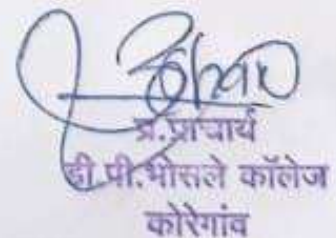 प्र.प्राचार्य
डी.पी.भोसले कॉलेज
कोरेगांव